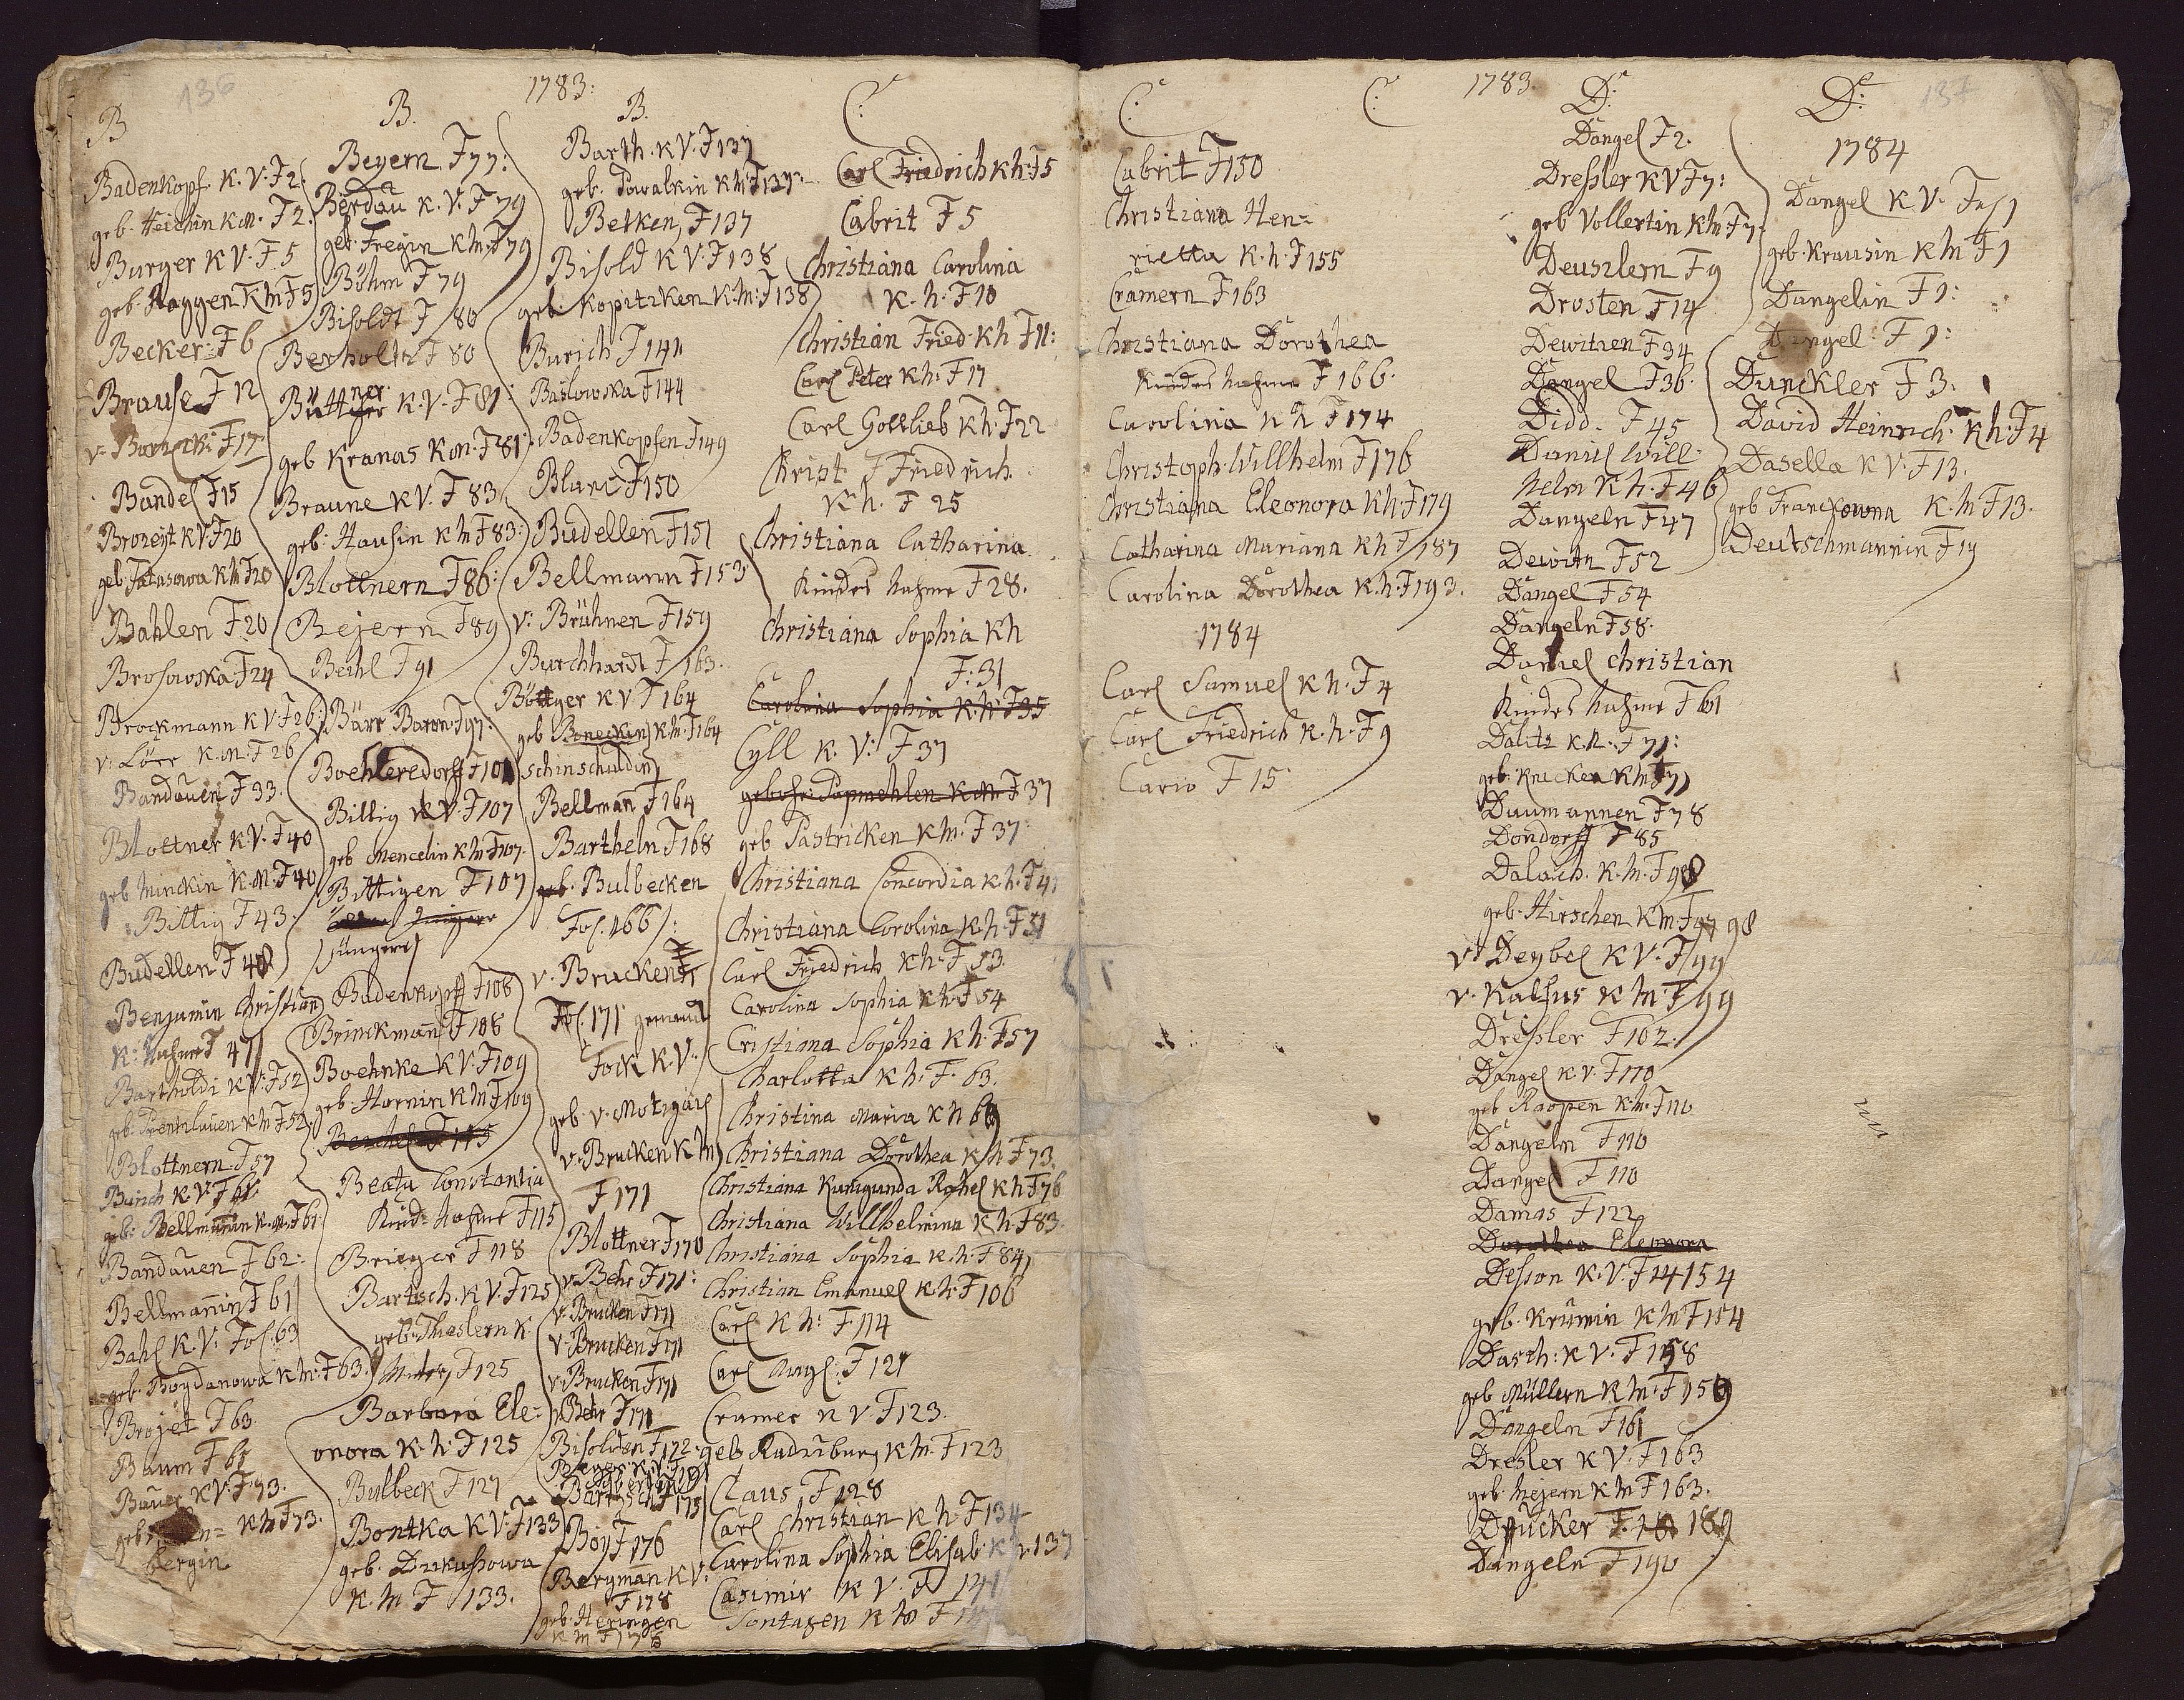 136
1783:
B
Badenkopf. K. V. F2.
geb. Heichin K M. F2.
Burger K V. F5
geb. Raggen K M F5
Becker. F6
Brause F12
v. F17
Bandel F15
Brozeyt K V F20
geb. K M F20
Bahlen F20
Brosowska F24
Brockmann K V F26
v. Löer K. M. F26
Bandauen F33.
Blottner K V. F40
geb Minckin K. M. F40
Billig F43.
Budellen F48
Benjamin Christian
K. Nahme F47
Bartholdi K V. F52
geb. Prentzlauen K M F52
Blottnern F57
Burich K V. F61
geb. Bellmanin K. M. F61
Bandauen F62.
Bellmannin F61
Bahl K. V. Fol. 63
geb. Bogdanowa K M. F63.
Brojet F63
Baum F67
Bauer K V. F73.
geb. K M F73.
bergin
B.
Beyern. F77:
Berdau K. V. F79
geb. Fregin K M. F79
Böhm F79
Bisoldt F80
Berholtz F80
Büttner K. V. F81:
geb Kranas K M. F81
Braune K V. F83
geb. Hausin K M F83
Blottnern F86:
Bejern F89
Beihl F91
Bärr Baron F97:
Boehleredorff F101
Billig K V. F107
geb Mencelin K M F107.
Bittigen F107
jüngere
Badenkopff F108
Brinckmann F108
Boehnke K V. F109
geb. Hornin K M F109
F115
Beata Constantia
Kind. Nahme F115
Brieger F118
Bartsch. K V. F125
geb. Theslern K.
Mutter F125
Barbara Ele-
onora K. N. F125
Bulbeck F127
Bontka K V. F133
geb. Dukassowa
K. M F 133.
B.
Barth. K V. F137
geb. Powalkin K M F137.
Betken F137
Bisold K V. F138
geb. Kopitzken K. M. F138
Burich F141
Baslowska F144
Badenkopfen F149
Blanc F150
Budellen F151
Bellmann F153
v. Brühnen F159
Burchhardt F163.
Böttger K V F164
geb Beneckin K M. F164
schinschuldin
Bellman F164
Bartheln F168
geb. Bulbecken
Fol. 166/:
v. Brucken
Fol. 171 genandt
Fock K. V.
geb. v. Motzgail
v. Brucken K M
F171
Blottner F170
v. Behr F171:
v. Brucken F171
v. Brucken F171
v. Brucken F171
v. Behr F171
Bisolden F172.
Bartzsch F175
Boy F176
Bergman K V.
F178
geb. Heringen
K M F178
C:
Carl Friedrich K h. F5
Cabrit F5
Christiana Carolina
K. h. F10
Christian Fried. K h F11:
Carl Peter K h. F17
Carl Gottlieb K h. F22
Christ F Friedrich
K h. F 25
Christiana Catharina
Kindes Nahme F28.
Christiana Sophia K h
F. 31
Carolina Sophia K. h. F35
Cyll K. V. F37
gebohr. Papmehlen K M. F37
geb Pastricken K M. F37.
Christiana Concordia K. h. F41
Christiana Corolina K. h. F51
Carl Friedrich K h. F53
Carolina Sophia K h F54
Cristiana Sophia K h. F57
Charlotta K h. F. 63.
Christina Maria K h 69
Christiana Dorothea K h F73.
Christiana Kunigunda Rahel K h F76
Christiana Willhelmina K h. F83.
Christiana Sophia K. h. F84
Christian Emanuel K. h. F106
Carl K h: F114
Carl Augl: F121
Cramer K V. F123.
geb Radziburg K M. F123
Claus F128
Carl Christian K h. F134
Carolina Sophia Elisab. K h 137
Casimir K V. F 141
Sontagen K M F
C:
C:
1783.
Cabrit F150
Christiana Hen-
rietta K. h. F155
Cramern F163
Christiana Dorothea
Kindes Nahme F166.
Carolina K h F174
Christoph. Willhelm F176
Christiana Eleonora K h. F179
Catharina Mariana K h F187
Carolina Dorothea K. h. F193.
1784
Carl Samuel K h. F4
Carl Friedrich K. h. F9
Cario F15.
D:
Dangel F2.
Dressler K V F7:
geb Vollertin K h. F7.
Deuszlern F9
Drosten F14
Dewitzen F34
Dangel F36.
Didd. F45
Daniel Will-
helm K h. F46
Dangeln F47
Dewitz F52
Dangel F54
Dangeln F58.
Daniel Christian
Kindes Nahme F61
Dalitz K. V. F71:
geb. Knecken K M F71
Daumannen F78
Dondorff F85
Dalach. K. M. F98
geb. Hirschen K M. F97 98
v. Deybel K V. F99
v. Kalsus K M F99
Dressler F102.
Dangel K. V. F110
geb Raopen K M. F110
Dangeln F110
Dangel F110
Damas F122
Dorothea Eleonora
Desson K. V. F14154
geb. Krümin K M F154
Dasch: K V. F158
geb Müllern K M. F158
Dangeln F161
Dresler K V. F163
geb. Mejern K M F163.
Drücker F. 18 189
Dangeln F190
D:
137
1784
Dangel K V. F1
geb. Krausin K M F1
Dangelin F1:
Dangel F1:
Dunckler F3.
David Heinrich. K h. F4
Dasella K V. F13.
geb Franckowna K. M F13.
Deutschmannin F19